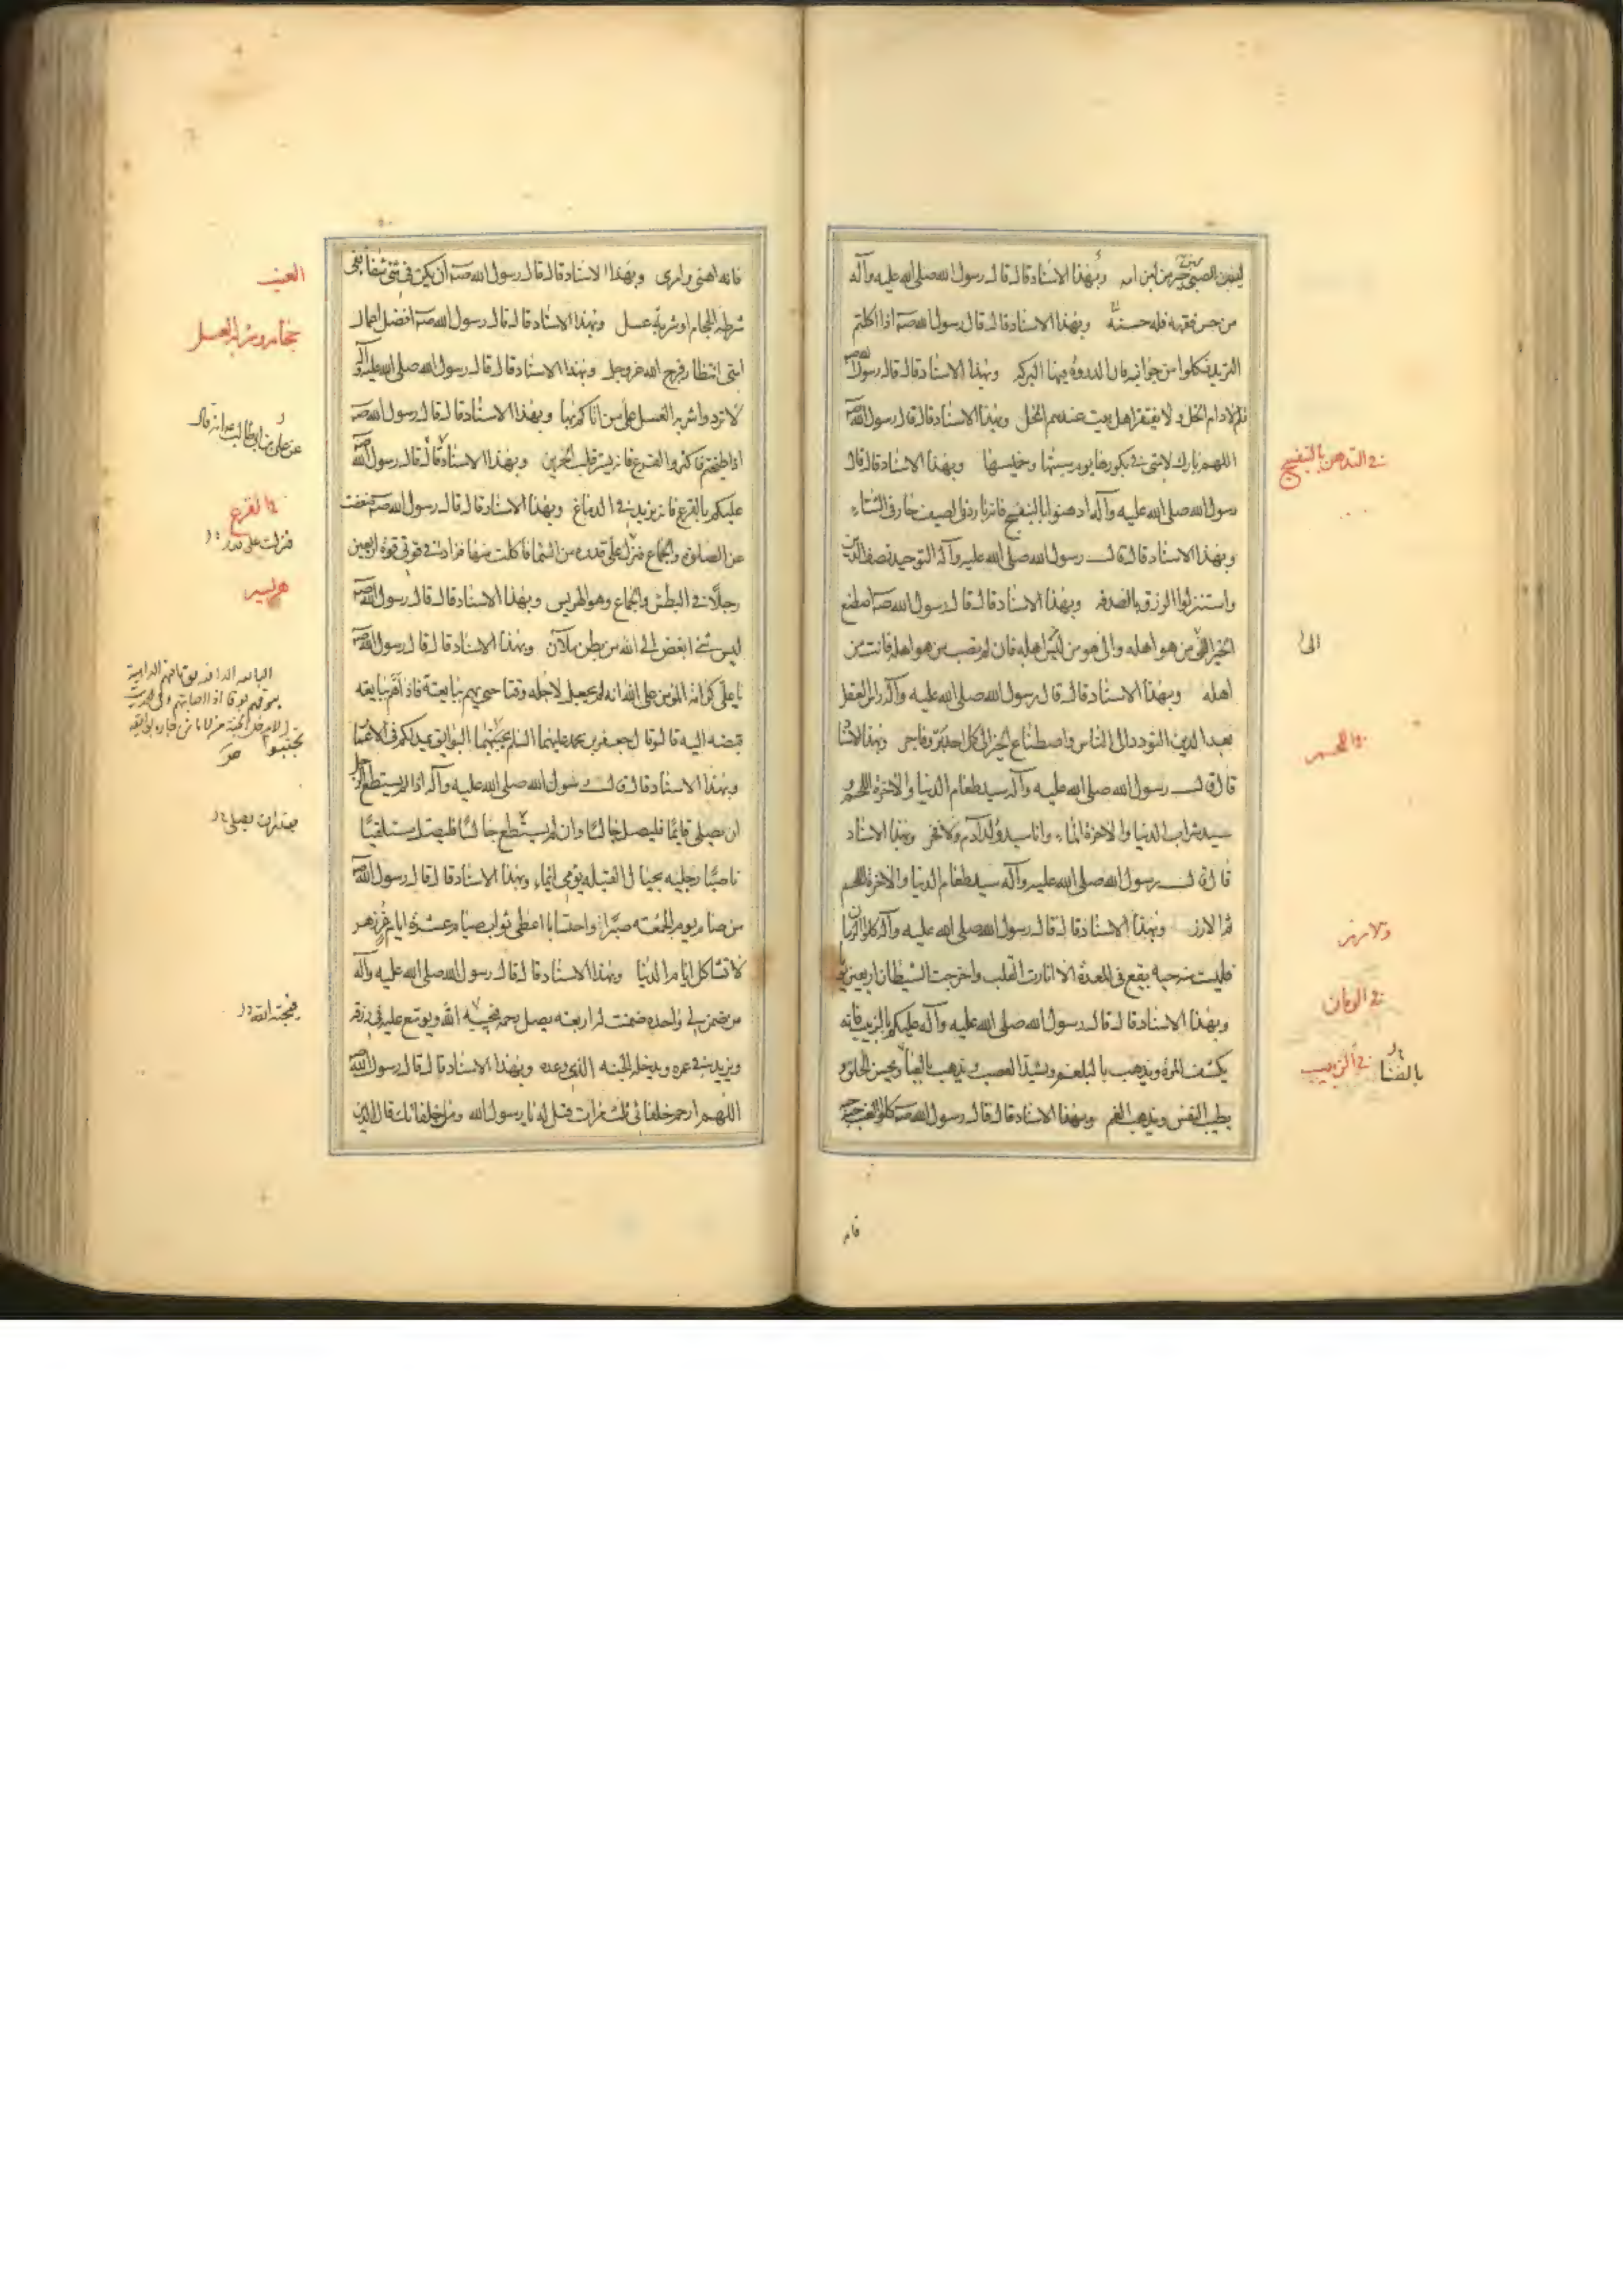 للصبي خير من لبن امه وبهذا الاسناد قال قال رسول الله صلى الله عليه وآله
من حسن فقهه فله حسنة وبهذا الاسناد قال قال رسول الله صه اذا اكلتم
الثريد فكلوا من جوانبه فان الذروة فيها البركة وبهذا الاسناد قال قال رسول الله صه
نعم الادام الخل ولا يفتقر اهل بيت عندهم الخل وبهذا الاسناد قال قال رسول الله صه
اللهم بارك لامتى فى بكورها يوم سبتها وخميسها وبهذا الاسناد قال قال
رسول الله صلى الله عليه وآله ادهنوا بالبنفسج فانه بارد فى الصيف حار فى الشتاء
وبهذا الاسناد قال قال رسول الله صلى الله عليه وآله التوحيد نصف الدين
واستنزلوا الرزق بالصدقه وبهذا الاسناد قال قال رسول الله صه اصطنع
الخير الى من هو اهله والى من هو ليس اهله فان لم تصب من هو اهله فانت من
اهله وبهذا الاسناد قال قال رسول الله صلى الله عليه وآله راس العقل
بعد الدين التودد الى الناس واصطناع الخير الى كل احد بر وفاجر وبهذا الاسناد
قال قال رسول الله صلى الله عليه وآله سيد طعام الدنيا والاخرة اللحم و
سيد شراب الدنيا والاخرة الماء وانا سيد ولد آدم ولا فخر وبهذا الاسناد
قال قال رسول الله صلى الله عليه وآله سيد طعام الدنيا والاخرة اللحم
ثم الارز وبهذا الاسناد قال قال رسول الله صلى الله عليه وآله كلوا الرمان
فليست منه حبه يقع فى المعدة الا انارت القلب واخرجت الشيطان اربعين يوما
وبهذا الاسناد قال قال رسول الله صلى الله عليه وآله عليكم بالزبيب فانه
يكشف المرة ويذهب بالبلغم ويشد العصب ويذهب بالعيا ويحسن الخلق و
يطيب النفس ويذهب الغم وبهذا الاسناد قال قال رسول الله صه كلوا العنب حبة حبة
فانه
فى التدهن بالبنفسج
الى
فى اللحم
والارز
فى الرمان
بالضنا
فى الزبيب
فانه اهنى وامرى وبهذا الاسناد قال قال رسول الله صه ان يكن فى شئ شفا ففى
شرطة الحجام او شربة عسل وبهذا الاسناد قال قال رسول الله صه افضل اعمال
امتى انتظار فرج الله عز وجل وبهذا الاسناد قال قال رسول الله صلى الله عليه وآله
لا تردوا شربة العسل على من اتاكم بها وبهذا الاسناد قال قال رسول الله صه
اذا طبختم فاكثروا القرع فانه يسر قلب الحزين وبهذا الاسناد قال قال رسول الله صه
عليكم بالقرع فانه يزيد فى الدماغ وبهذا الاسناد قال قال رسول الله صه ضعفت
عن الصلوة والجماع فنزل على قدرة من السما فاكلت منها فزادت فى قوتى قوة اربعين
رجلا فى البطش والجماع وهو الهريس وبهذا الاسناد قال قال رسول الله صه
ليس شئ ابغض الى الله من بطن ملآن وبهذا الاسناد قال قال رسول الله صه
يا على كرامة المؤمن على الله انه لم يجعل لاجله وقتا حتى يهم ببايعته فاذا هم ببايقه
قبضه اليه قال وقال جعفر بن محمد عليهما السلم تجنبوا البوايق يمد لكم فى الاعمار
وبهذا الاسناد قال قال رسول الله صلى الله عليه وآله اذا لم يستطع الرجل
ان يصلى قايما فليصل جالسا وان لم يستطع جالسا فليصل مستلقيا
ناصبا رجليه بحيال القبله يومى ايماء وبهذا الاسناد قال قال رسول الله صه
من صام يوم الجمعه صبرا واحتسابا اعطى ثواب صيام عشرة ايام غر زهر
لا تشاكل ايام الدنيا وبهذا الاسناد قال قال رسول الله صلى الله عليه وآله
من ضمن لى واحدة ضمنت له اربعه يصل رحمه فيحبه الله ويوسع عليه فى رزقه
ويزيد فى عمره ويدخله الجنه الذى وعده وبهذا الاسناد قال قال رسول الله صه
اللهم ارحم خلفائى ثلث مرات قيل له يا رسول الله ومن خلفائك قال الذين
العنب
عن على بن ابى طالب ع انه قال
فى القرع
فنزلت على قدر
هريسه
يصلى
فيحبه الله